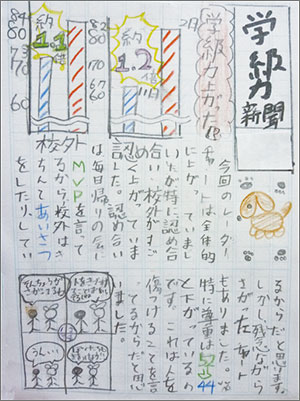 学級力
新聞
学級力上がた!?
2月
約
1.2倍
11月
83
80
70
60
約
1.1倍
84
80
73
70
60
今回のレーダー
チャートは全体的
に上がっていまし
たが特に認め合
い、校外がすご
く上がっていま
した。認め合い
は毎日帰りの会に
MVPを言って
るから校外はき
ちんとあいさつ
をしたりしてい
るからだと思います。
しかし、残念ながら
さがった所
もありました。
特に尊重は52→44
と下がっているの
です。これは人を
傷つけることを言っ
てるからだと思
いました。
うんいい